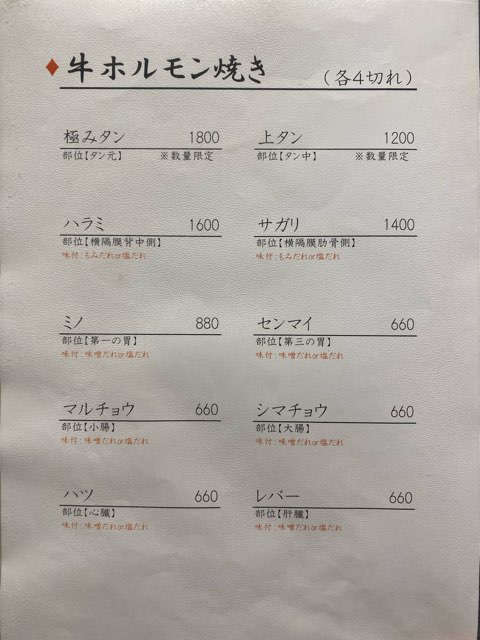 ◆牛ホルモン焼き （各4切れ）
極みタン 1800
部位【タン元】 ※数量限定
上タン 1200
部位【タン中】 ※数量限定
ハラミ 1600
部位【横隔膜背中側】
味付：もみだれor塩だれ
サガリ 1400
部位【横隔膜肋骨側】
味付：もみだれor塩だれ
ミノ 880
部位【第一の胃】
味付：味噌だれor塩だれ
センマイ 660
部位【第三の胃】
味付：味噌だれor塩だれ
マルチョウ 660
部位【小腸】
味付：味噌だれor塩だれ
シマチョウ 660
部位【大腸】
味付：味噌だれor塩だれ
ハツ 660
部位【心臓】
味付：味噌だれor塩だれ
レバー 660
部位【肝臓】
味付：味噌だれor塩だれ